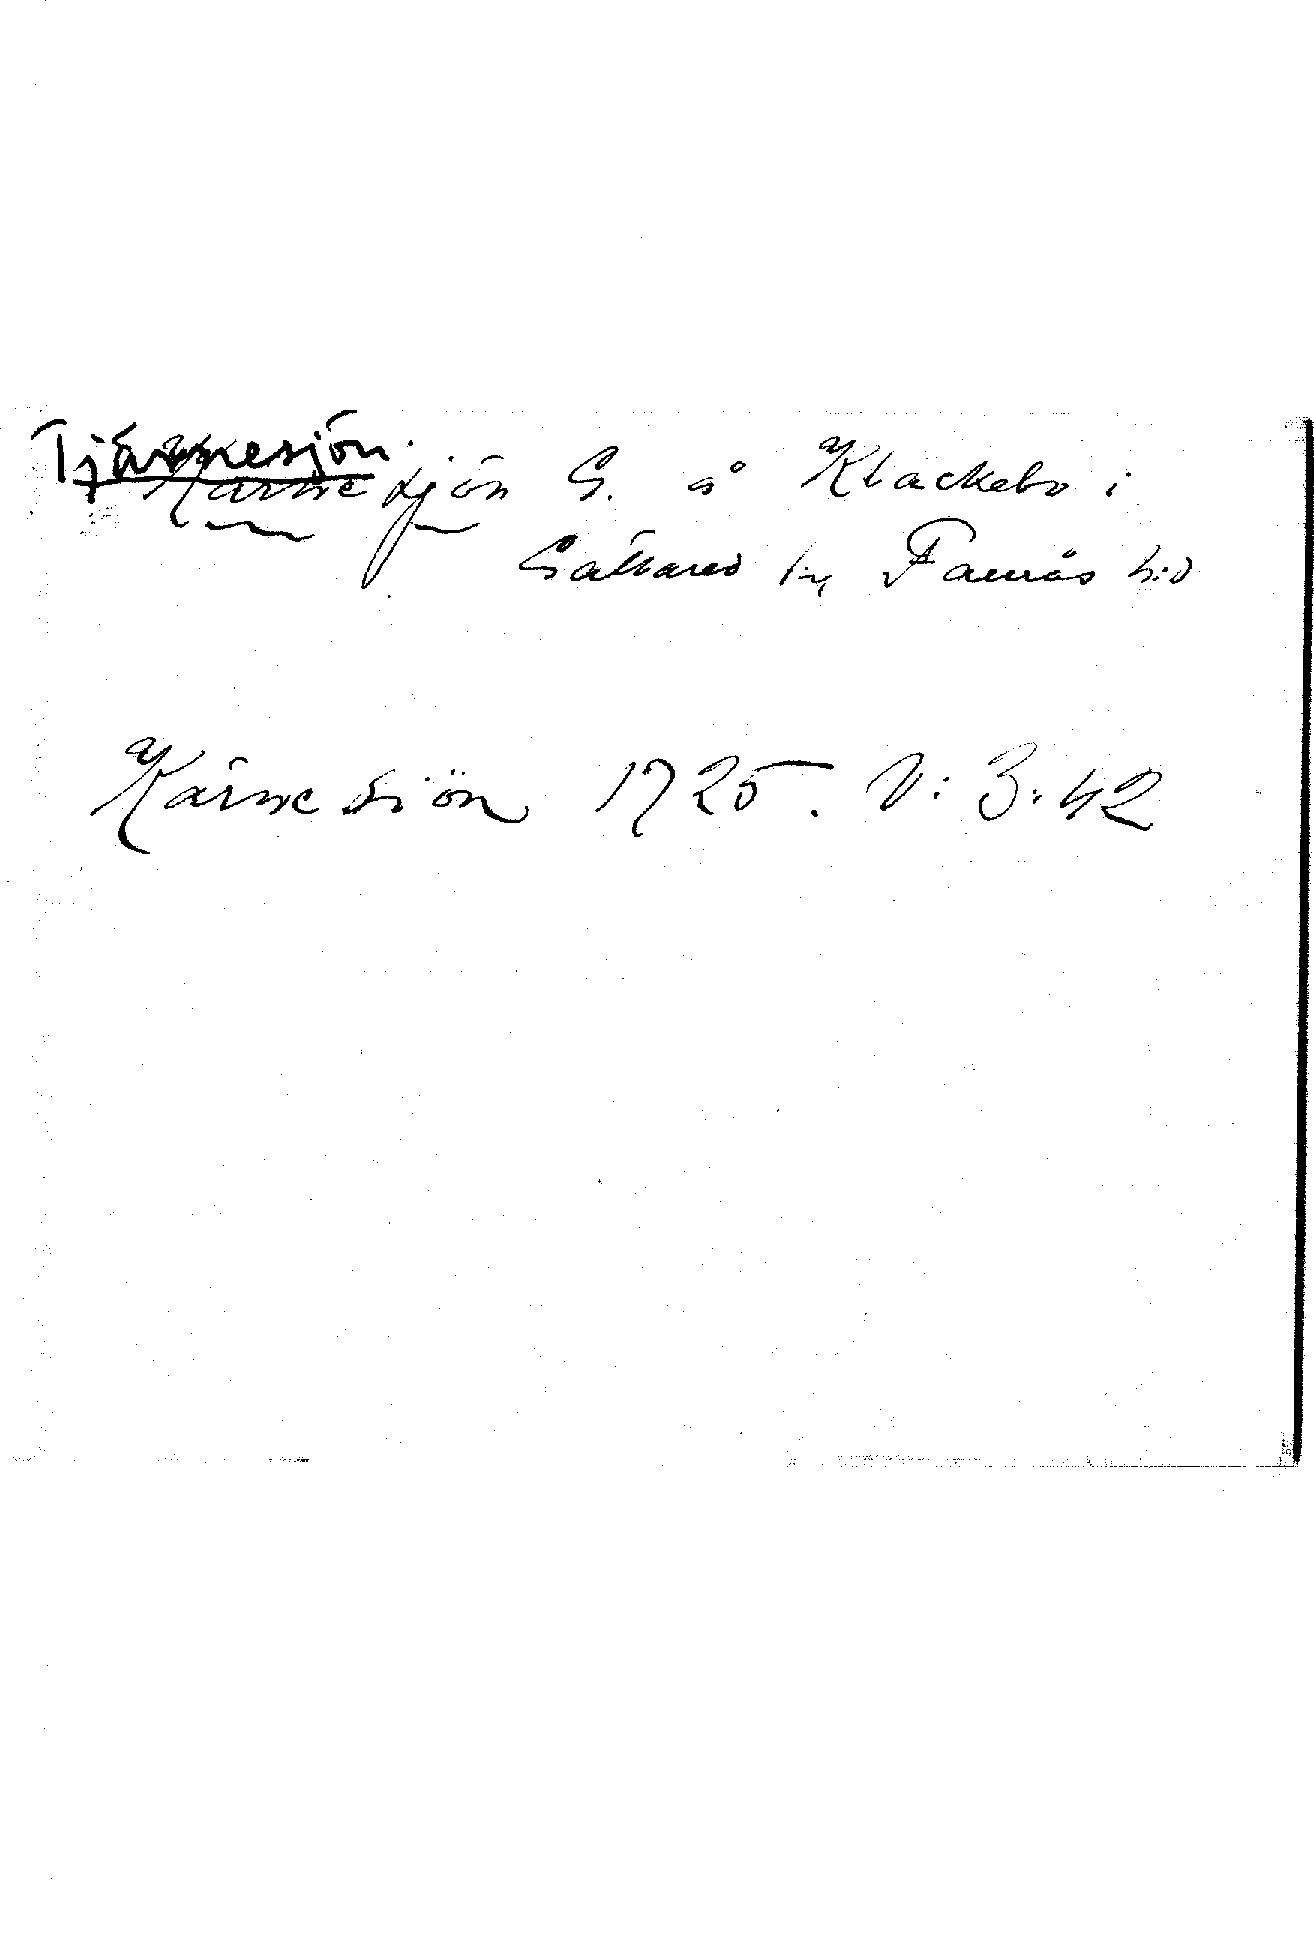 Tjärnesjön.
Kärnesjön S. å Klackebo i
Gällared sn Faurås h:d
Kärnesiön 1725. V: 3: 42